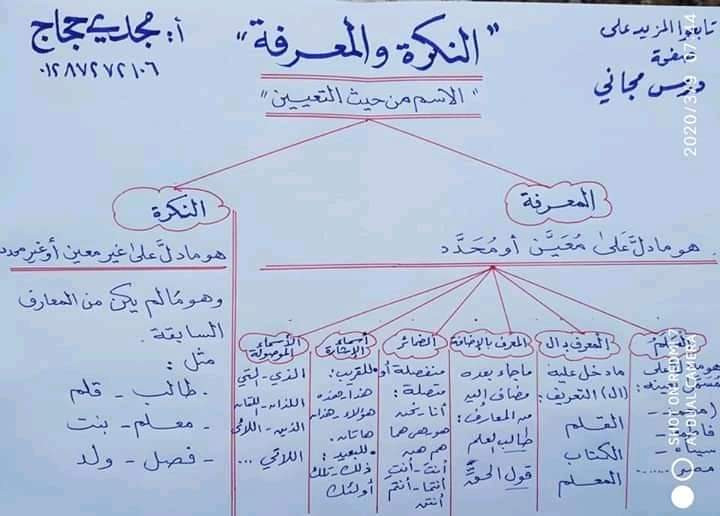 تابعوا المزيد على
صفوة
دروس مجاني
"النكرة والمعرفة"
أ: مجدي حجاج
٠١٢٨٧٢٧٢١٠٦
"الاسم من حيث التعيين"
المعرفة
هو ما دلَّ على مُعَيَّن أو مُحَدَّد.
العَلَم
هو ما دل على
(محمد -
المعرف بـ ال
ما دخل عليه
(ال) التعريف:
القلم
الكتاب
المعلم
المعرف بالإضافة
ما جاء بعده
مضاف إليه
من المعارف:
طالب العلم
قول الحقِّ
الضمائر
منفصلة أو
متصلة:
أنا - نحن
هو - هي - هما
هم - هن
أنتَ - أنتِ
أنتما - أنتم
أنتن
أسماء الإشارة
للقريب:
هذا - هذه
هؤلاء - هذان
هاتان.
للبعيد:
ذلك - تلك
أولئك
الأسماء الموصولة
الذي - التي
اللذان - اللتان
الذين - اللاتي
اللائي ...
النكرة
هو ما دلَّ على غير معين أو غير محدد
وهو ما لم يكن من المعارف
السابقة.
مثل:
طالب - قلم
- معلم - بنت
- فصل - ولد
SHOT ON REDMI 7
AI DUAL CAMERA